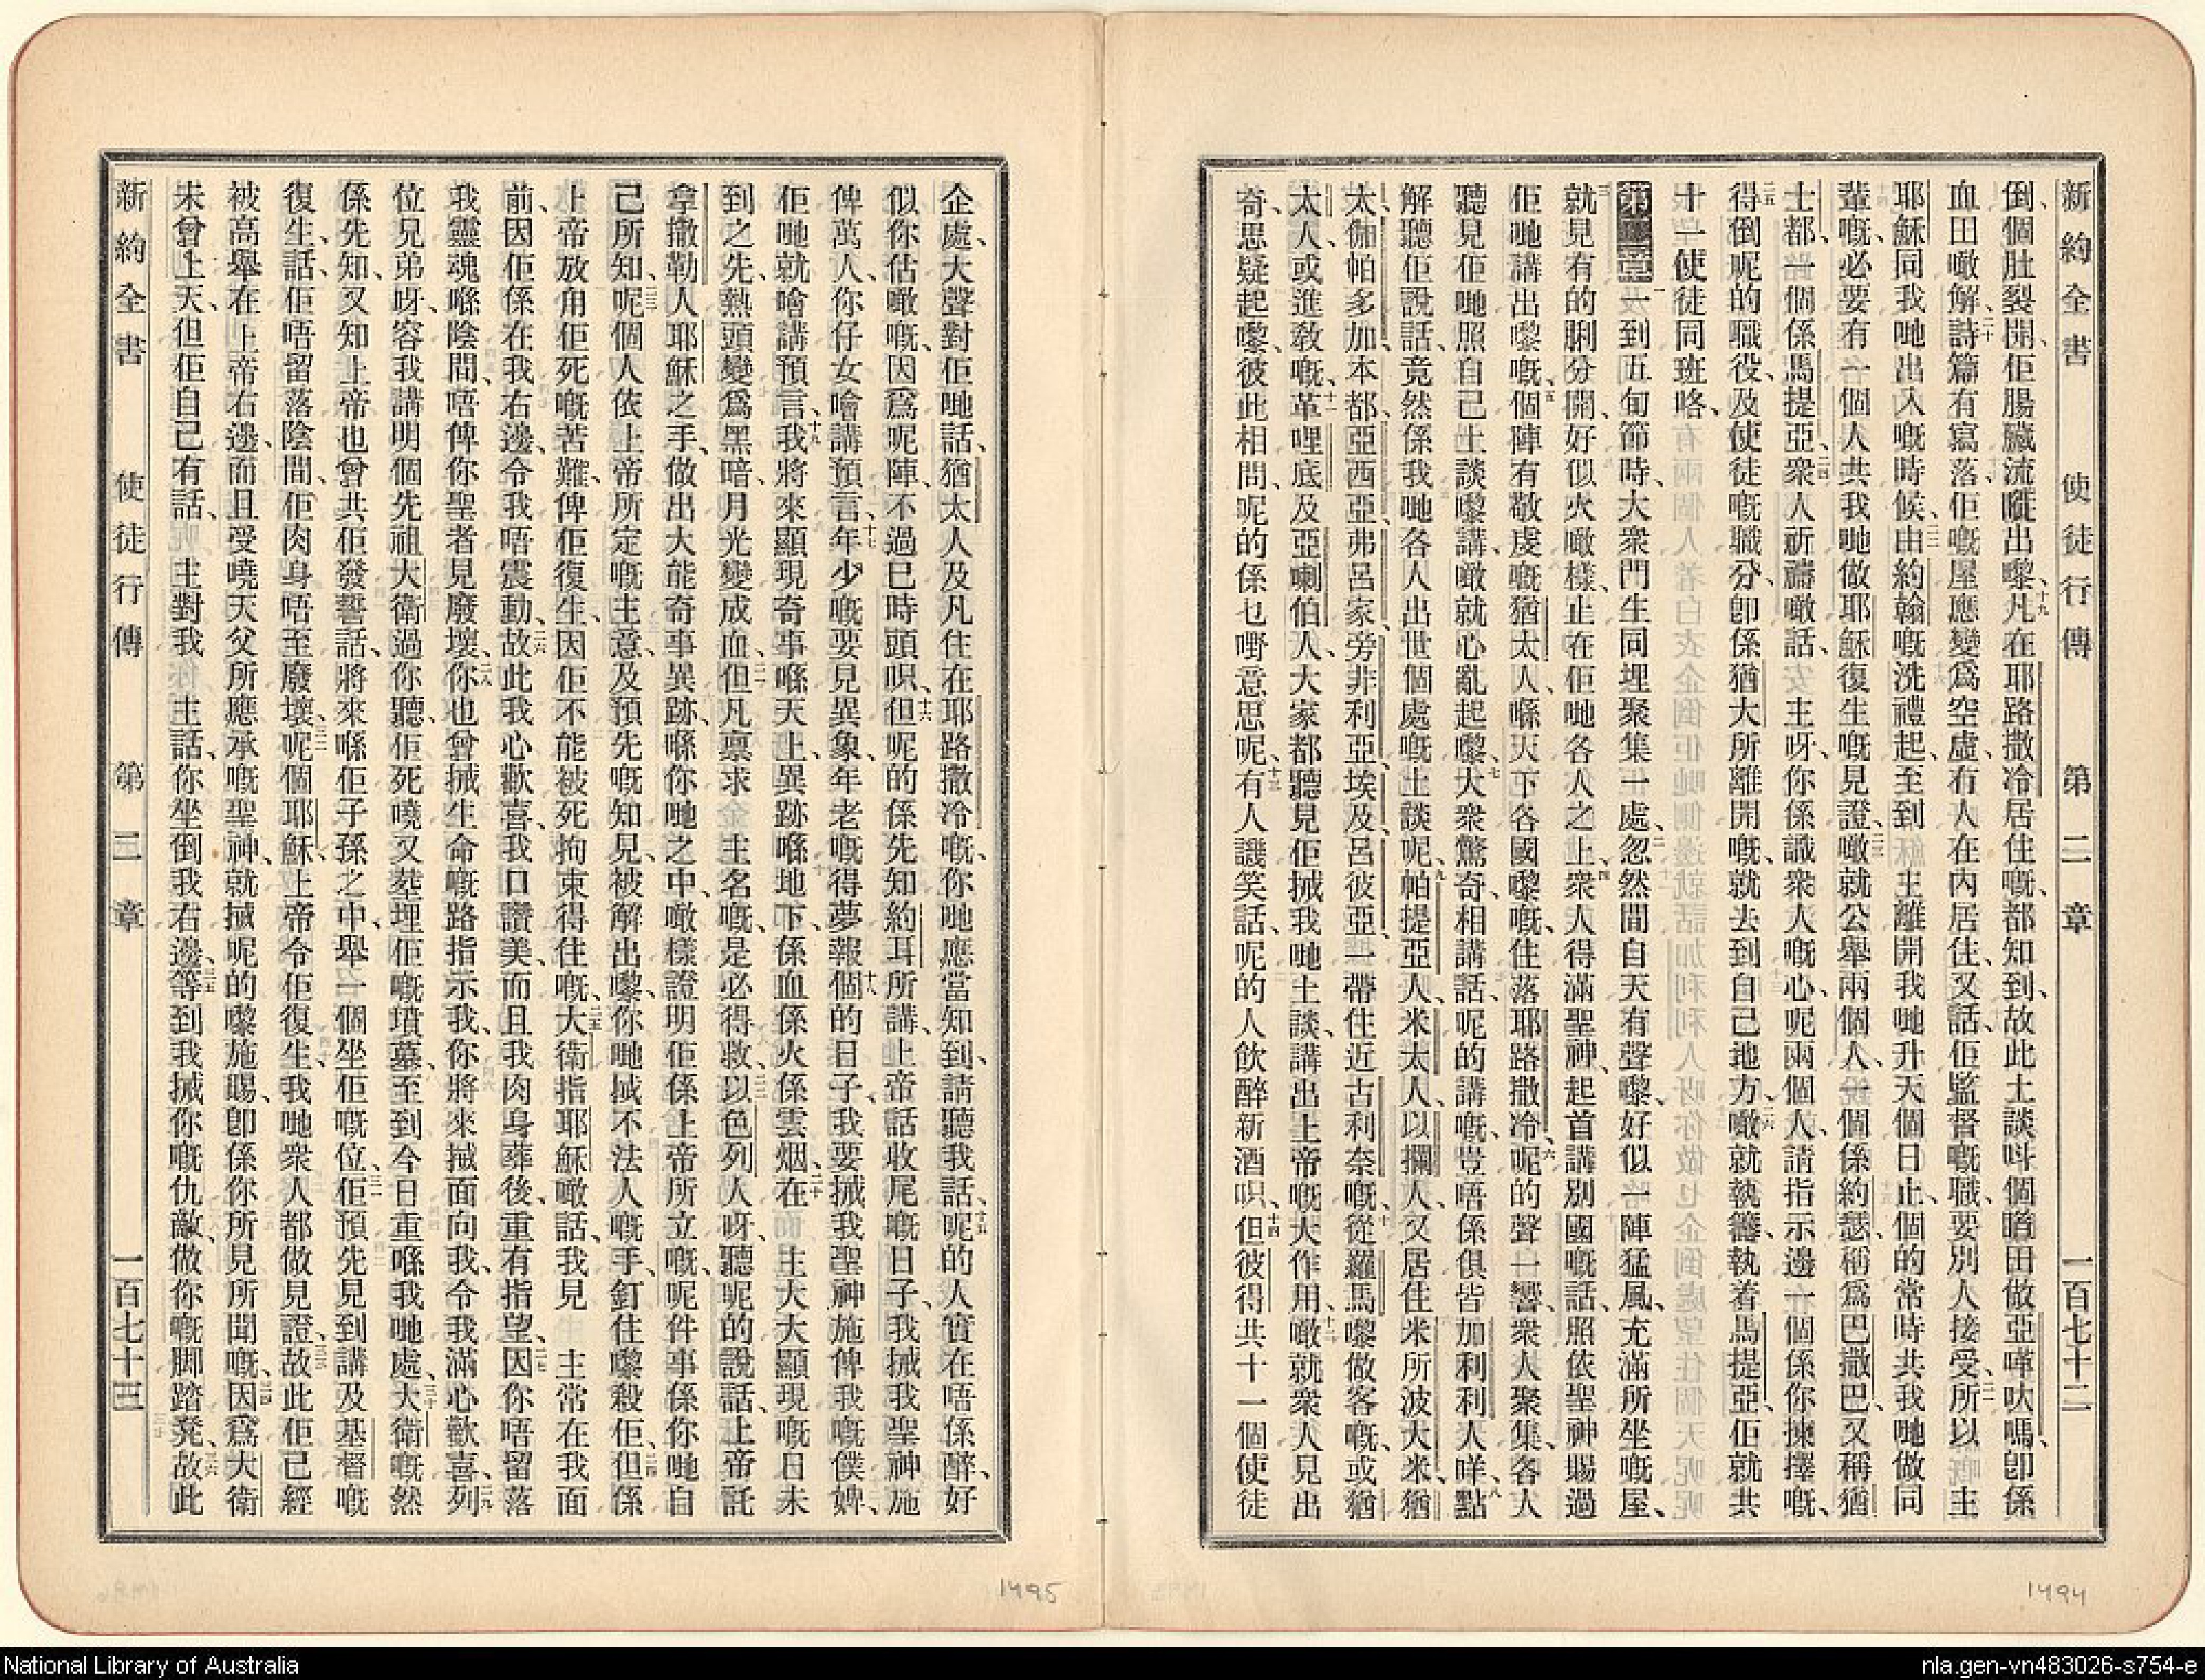 新約全書 使徒行傳 第二章 一百七十二
倒、個肚裂開、佢腸臟流嘥出嚟、十九凡在耶路撒冷居住嘅、都知到、故此土談呌個嚿田做亞嗱吠嗎、卽係
血田噉解、二十詩篇有寫落佢嘅屋應變爲空虛、冇人在內居住、又話、佢監督嘅職、要別人接受、二一所以主
耶穌同我哋出入嘅時候、二二由約翰嘅洗禮起、至到主離開我哋升天個日止、個的常時共我哋做同
輩嘅、必要有一個人共我哋做耶穌復生嘅見證、二三噉就公舉兩個人、一個係約瑟、稱爲巴撒巴、又稱猶
士都、一個係馬提亞、二四衆人祈禱噉話、主呀、你係識衆人嘅心、呢兩個人、請指示邊一個係你揀擇嘅、
二五得倒呢的職役、及使徒嘅職分、卽係猶大所離開嘅、就去到自己地方、二六噉就執籌、執着馬提亞、佢就共
十一使徒同班咯、
第二章 一到五旬節時、大衆門生同埋聚集一處、二忽然間自天有聲嚟、好似一陣猛風、充滿所坐嘅屋、
三就見有的脷分開、好似火噉樣、止在佢哋各人之上、四衆人得滿聖神、起首講別國嘅話、照依聖神賜過
佢哋講出嚟嘅、五個陣有敬虔嘅猶太人、喺天下各國嚟嘅、住落耶路撒冷、六呢的聲一響、衆人聚集、各人
聽見佢哋照自己土談嚟講、噉就心亂起嚟、七大衆驚奇、相講話、呢的講嘅、豈唔係俱皆加利利人咩、八點
解聽佢說話、竟然係我哋各人出世個處嘅土談呢、九帕提亞人、米太人、以攔人、又居住米所波大米、猶
太、伽帕多加、本都、亞西亞、十弗呂家、旁非利亞、埃及、呂彼亞、一帶住近古利奈嘅、從羅馬嚟做客嘅、或猶
太人、或進敎嘅、十一革哩底及亞喇伯人、大家都聽見佢搣我哋土談、講出上帝嘅大作用、十二噉就衆人見出
奇、思疑起嚟、彼此相問、呢的係乜嘢意思呢、十三有人譏笑話、呢的人飲醉新酒唄、十四但彼得共十一個使徒
1494
企處、大聲對佢哋話、猶太人及凡住在耶路撒冷嘅、你哋應當知到、請聽我話、十五呢的人實在唔係醉、好
似你估噉嘅、因爲呢陣、不過巳時頭唄、十六但呢的係先知約耳所講、十七上帝話、收尾嘅日子、我搣我聖神施
俾萬人、你仔女噲講預言、年少嘅要見異象、年老嘅得夢報、十八個的日子、我要搣我聖神施俾我嘅僕婢、
佢哋就噲講預言、十九我將來顯現奇事喺天上、異跡喺地下、係血係火係雲烟、二十在 主大大顯現嘅日未
到之先、熱頭變爲黑暗、月光變成血、二一但凡禀求 主名嘅、是必得救、二二以色列人呀、聽呢的說話、上帝託
拿撒勒人耶穌之手、做出大能奇事異跡、喺你哋之中、噉樣證明佢係上帝所立嘅、呢件事係你哋自
己所知、二三呢個人依上帝所定嘅主意、及預先嘅知見、被解出嚟、你哋搣不法人嘅手、釘住嚟殺佢、二四但係
上帝放甪佢死嘅苦難、俾佢復生、因佢不能被死拘束得住嘅、二五大衛指耶穌噉話、我見 主常在我面
前、因佢係在我右邊、令我唔震動、二六故此我心歡喜、我口讚美、而且我肉身葬後、重有指望、二七因你唔留落
我靈魂喺陰間、唔俾你聖者見廢壞、二八你也曾搣生命嘅路指示我、你將來搣面向我、令我滿心歡喜、二九列
位見弟呀、容我講明個先祖大衛過你聽、佢死嘵、又塟埋、佢嘅墳墓、至到今日重喺我哋處、三十大衛嘅然
係先知、又知上帝也曾共佢發誓話、將來喺佢子孫之中、舉一個坐佢嘅位、三一佢預先見到、講及基督嘅
復生、話、佢唔留落陰間、佢肉身唔至廢壞、三二呢個耶穌、上帝令佢復生、我哋衆人都做見證、三三故此佢已經
被高舉在上帝右邊、而且受嘵天父所應承嘅聖神、就搣呢的嚟施賜、卽係你所見所聞嘅、三四因爲大衛
未曾上天、但佢自己有話、 主對我 主話、你坐倒我右邊、三五等到我搣你嘅仇敵、做你嘅脚踏凳、三六故此
新約全書 使徒行傳 第二章 一百七十三
1495
National Library of Australia
nla.gen-vn483026-s754-e